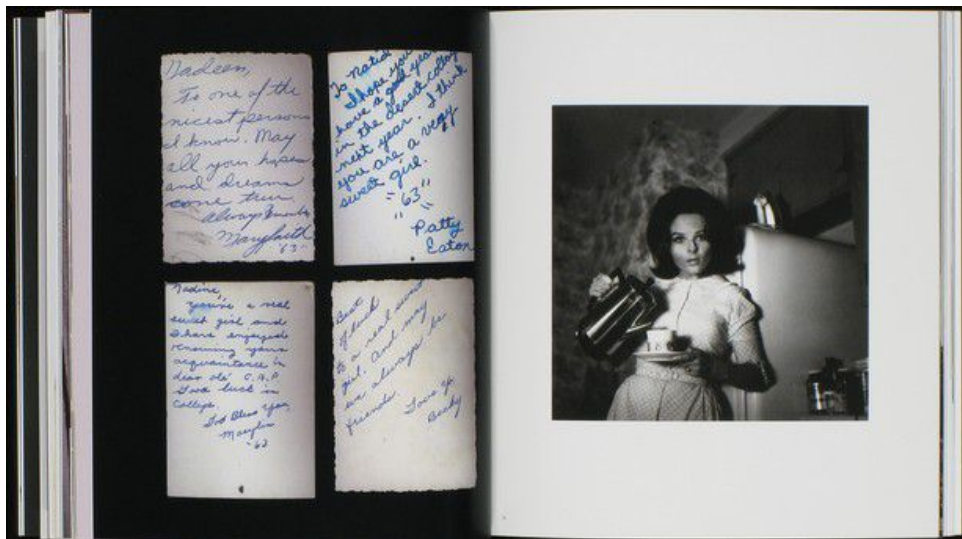 Nadeen,
To one of the
nicest persons
I know. May
all your hopes
and dreams
come true
Always
Maryfaith
'63'
To
I hope you
have a good year
in the desert
next year. I think
you are a very
sweet girl.
"63"
Patty
Eaton
Nadine,
you're a real
sweet girl and
I have enjoyed
knowing your
acquaintance in
dear ole' C.A.P.
Good luck in
College.
God Bless You,
Marylin
'63
Best
of luck
to a real sweet
girl. And may
we always be
friends.
Love Ya,
Becky